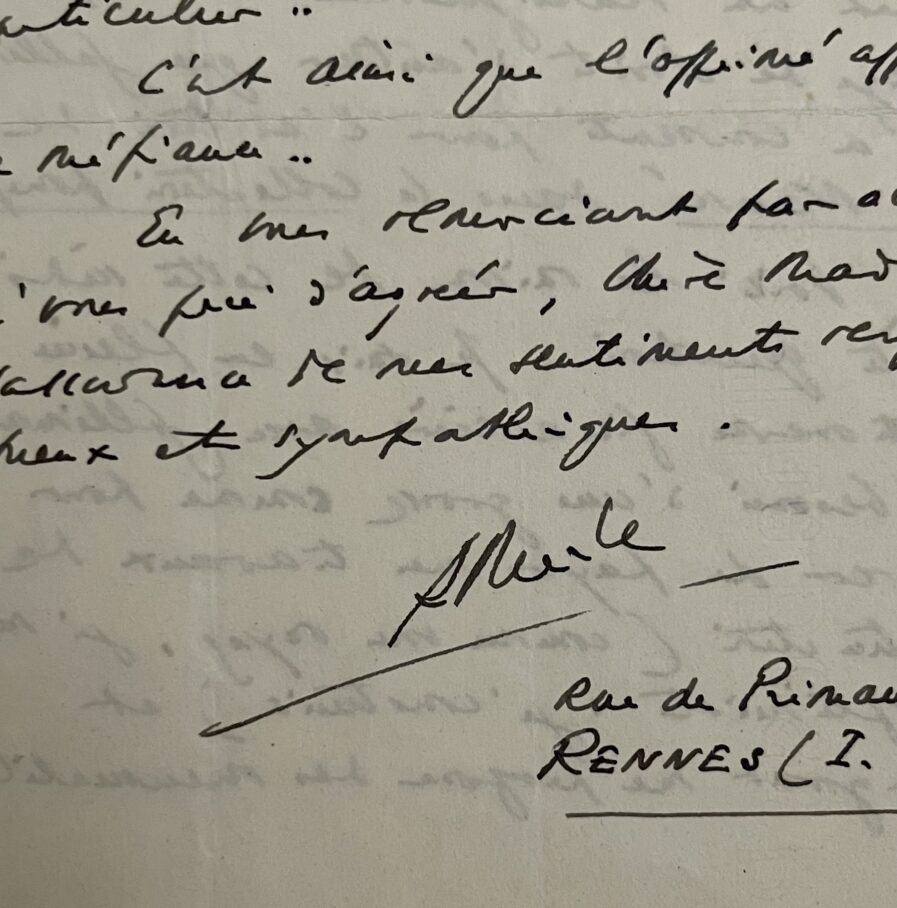 articulier ..
C'est ainsi que l'opprimé app
méfiance ..
En vous remerciant par a
vous prie d'agréer, Chère Mad
l'assurance de mes sentiments resp
tueux et sympathiques.
RMerle
Rue de Primau
RENNES (I.